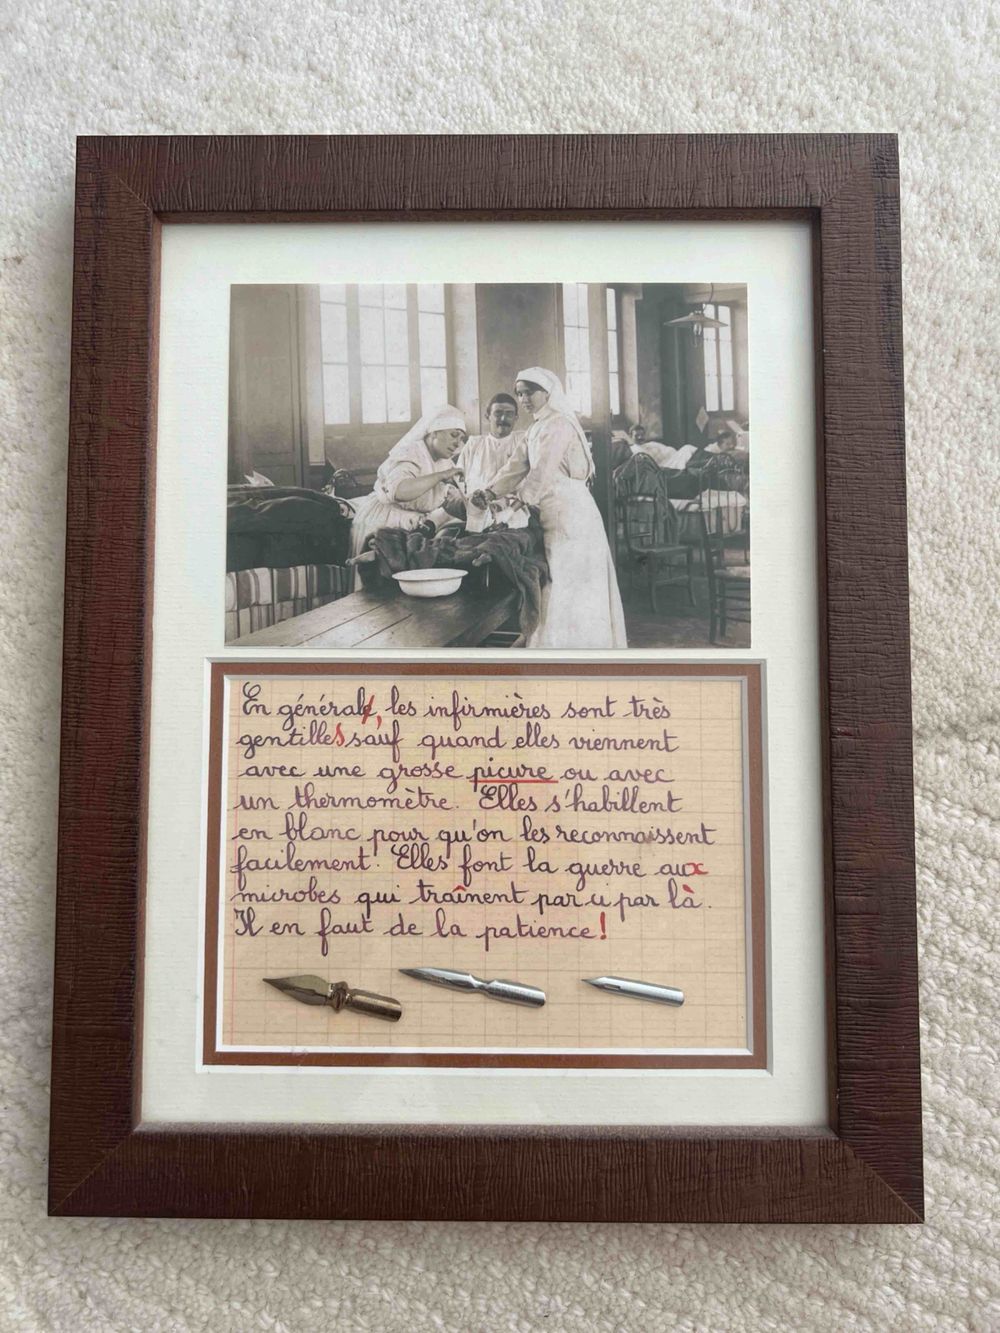 En général, les infirmières sont très
gentilles, sauf quand elles viennent
avec une grosse picure ou avec
un thermomètre. Elles s'habillent
en blanc pour qu'on les reconnaissent
facilement. Elles font la guerre aux
microbes qui traînent par ci par là.
Il en faut de la patience!